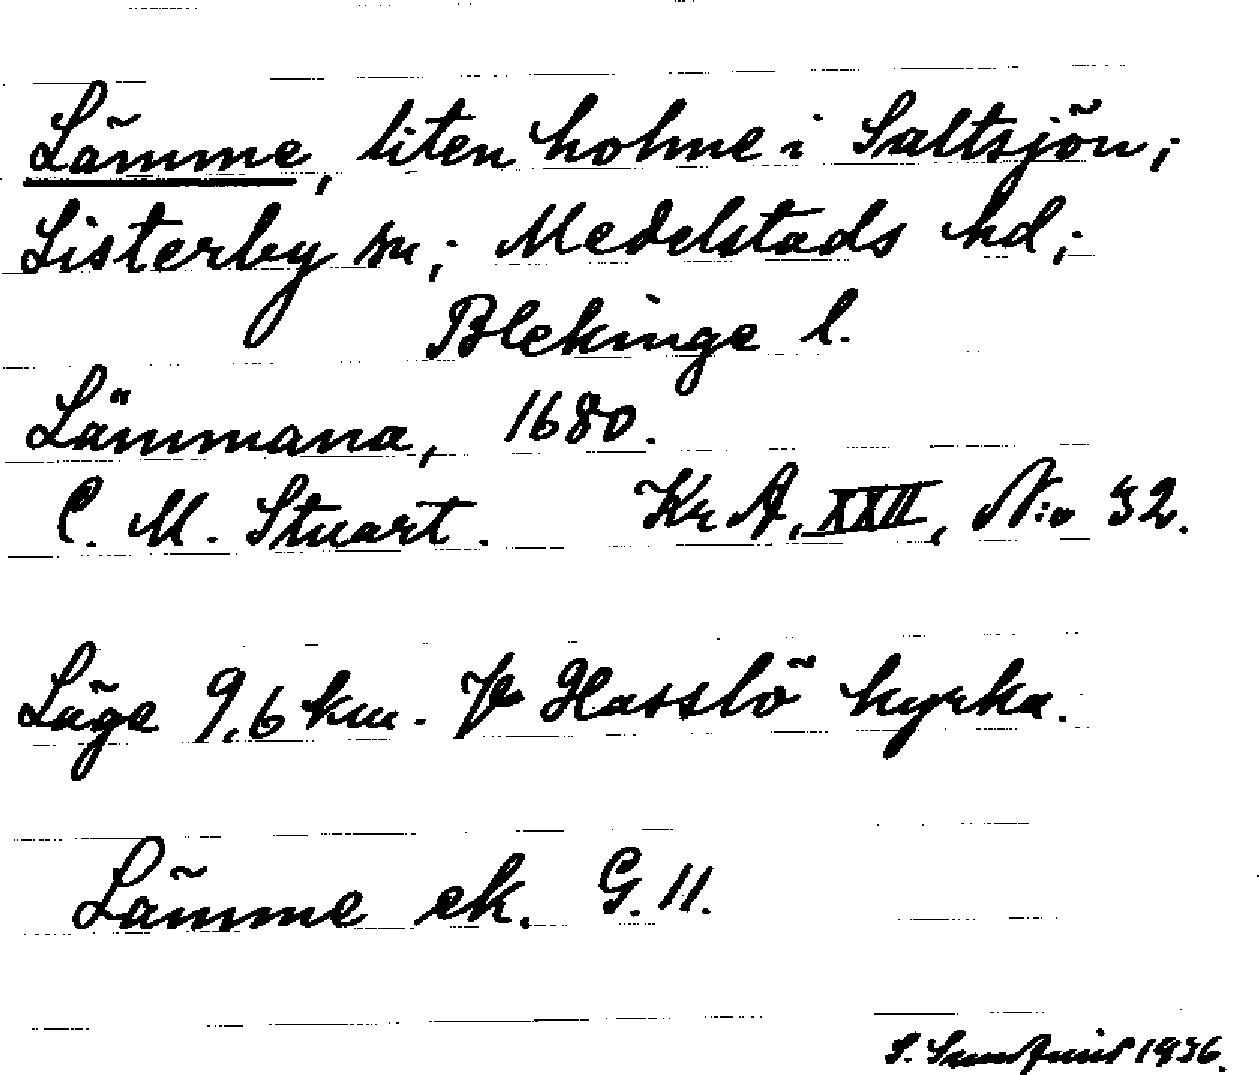 Lämme, liten holme i Saltsjön;
Listerby sn; Medelstads hd;
Blekinge l.
Lämmana, 1680.
C. M. Stuart. Kr A, XXII, N:o 32.
Läge 9,6 km. Hasslö kyrka.
Lämme ek. G. 11.
S. 1936.